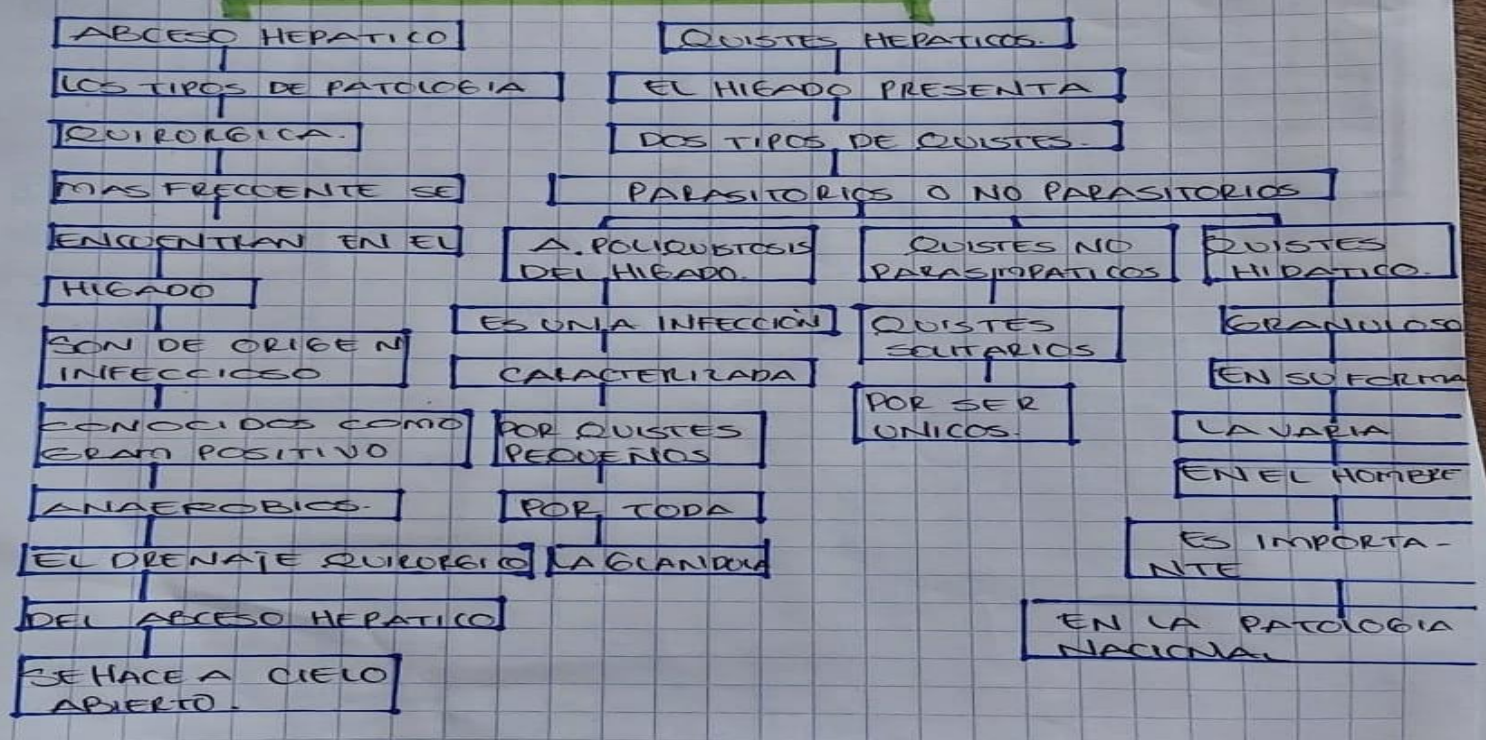 ABCESO HEPATICO
LOS TIPOS DE PATOLOGIA
QUIRORGICA.
MAS FRECCENTE SE
ENCUENTRAN EN EL
HIGADO
SON DE ORIGEN
INFECCIOSO
CONOCIDOS COMO
GRAM POSITIVO
ANAEROBICS.
EL DRENAJE QUIRORGICO
DEL ABCESO HEPATICO
SE HACE A CIELO
ABIERTO.
QUISTES HEPATICOS.
EL HIGADO PRESENTA
DOS TIPOS DE QUISTES.
PARASITORIOS O NO PARASITORIOS
A. POLIQUISTOSIS
DEL HIGADO.
ES UNA INFECCIÓN
CARACTERIZADA
POR QUISTES
PEQUEÑOS
POR TODA
LA GLANDULA
QUISTES NO
PARASITOPATICOS
QUISTES
SOLITARIOS
POR SER
UNICOS.
QUISTES
HIDATICO.
GRANULOSO
EN SU FORMA
LAVARIA
EN EL HOMBRE
ES IMPORTA-
NTE
EN LA PATOLOGIA
NACIONAL